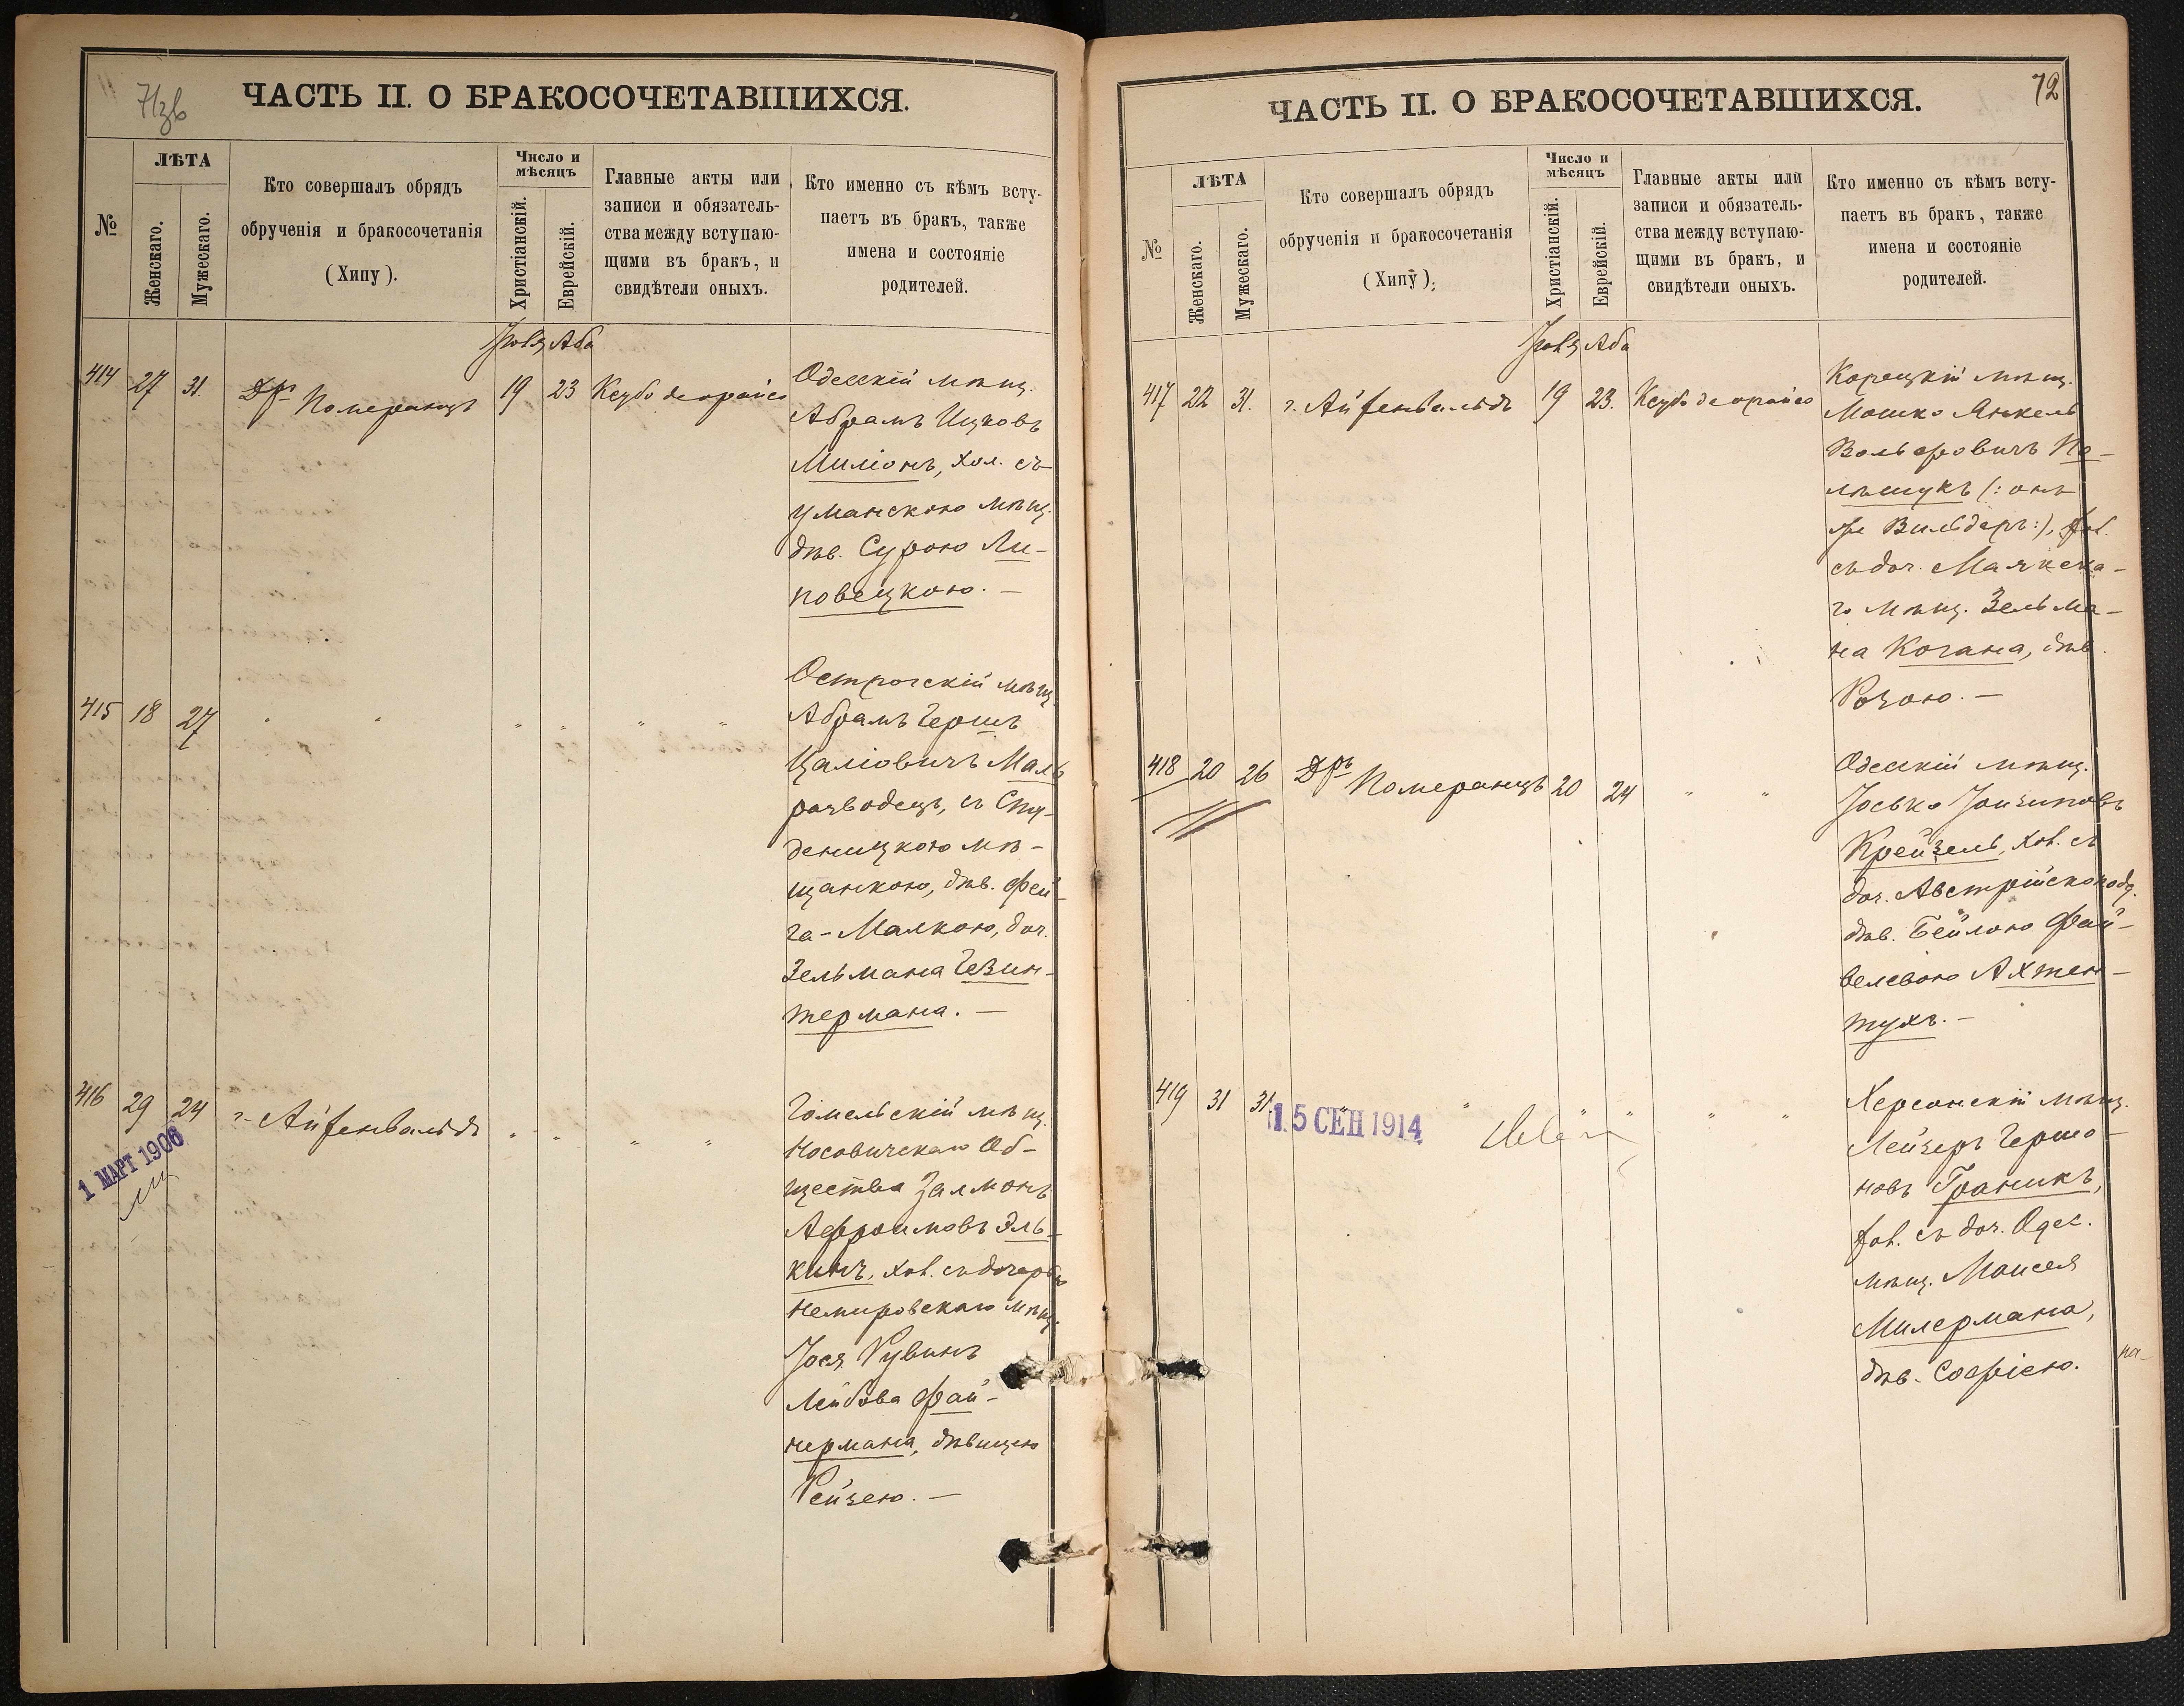 71зв
ЧАСТЬ II. О БРАКОСОЧЕТАВШИХСЯ.
№
ЛѢТА
Женскаго.
Мужескаго.
Кто совершалъ обрядъ
обрученія и бракосочетанія
(Хипу).
Число и
мѣсяцъ
Христіанскій.
Еврейскій.
Главные акты или
записи и обязатель-
ства между вступаю-
щими въ бракъ, и
свидѣтели оныхъ.
Кто именно съ кѣмъ всту-
паетъ въ бракъ, также
имена и состояніе
родителей.
Аба
414 27 31. Др Померанцъ 19 23 Ксубо деорайсо
Одесскій мѣщ.
Абрамъ Ицковъ
Миліонъ, хол. съ
уманскою мѣщ.
дѣв. Сурою Ли-
повецкою. —
415 18 27 " " " " " "
Острогскій мѣщ.
Абрамъ Гершъ
Цаліовичъ Маль
разводецъ, съ Сту-
деницкою мѣ-
щанкою, дѣв. Фей-
га-Малкою, доч.
Зельмана Гезин-
термана. —
416 29 24 г. Айзенвальдъ " " " "
1 МАРТ 1906
Гомельскій мѣщ.
Носовичскаго Об-
щества Залмонъ
Афроимовъ Эль-
кинъ, хол. съ дочерью
Немировскаго мѣщ.
Іося Рувинъ
Лейбова Фай-
нермана, дѣвицею
Рейзею. —
72
ЧАСТЬ II. О БРАКОСОЧЕТАВШИХСЯ.
№
ЛѢТА
Женскаго.
Мужескаго.
Кто совершалъ обрядъ
обрученія и бракосочетанія
(Хипу).
Число и
мѣсяцъ
Христіанскій.
Еврейскій.
Главные акты или
записи и обязатель-
ства между вступаю-
щими въ бракъ, и
свидѣтели оныхъ.
Кто именно съ кѣмъ всту-
паетъ въ бракъ, также
имена и состояніе
родителей.
Аба
417 22 31. г. Айзенвальдъ 19 23. Ксубо деорайсо
Корецкій мѣщ.
Мошко Янкель
Вольфовичъ По-
лѣщукъ (: онъ
же Вильдеръ:), хол.
съ доч. Маякска-
го мѣщ. Зельма-
на Когана, дѣв.
Розою. —
418 20 26 Дръ Померанцъ 20 24 " "
Одесскій мѣщ.
Іосько
Крейзель, хол. съ
доч. Австрійскоподд.
дѣв. Бейлою Фай-
велевою Ахтен-
тухъ. —
419 31 31. " " " " " "
15 СЕН 1914
Херсонскій мѣщ.
Лейзеръ Гершо-
новъ Граникъ,
хол. съ доч. Одес.
мѣщ. Моисея
Милермана,
дѣв. Софіею.